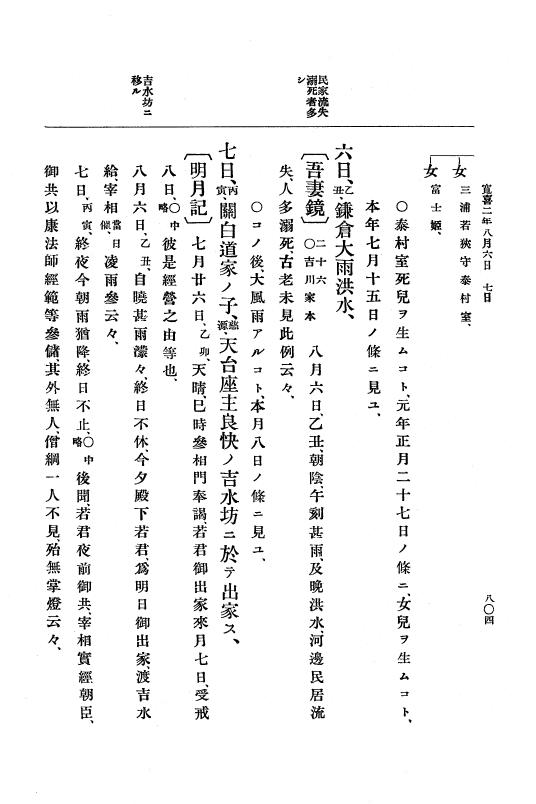 寛喜二年八月六日　七日
八〇四
女　三浦若狹守泰村室、
女　富士姬、
〇泰村室死兒ヲ生ムコト、元年正月二十七日ノ條ニ、女兒ヲ生ムコト、
本年七月十五日ノ條ニ見ユ、
民家流失
溺死者多
シ
六日、乙丑、鎌倉大雨洪水、
〔吾妻鏡〕二十六〇吉川家本　八月六日、乙丑、朝陰、午刻甚雨、及晩洪水、河邊民居流
失、人多溺死、古老未見此例云々、
〇コノ後、大風雨アルコト、本月八日ノ條ニ見ユ、
吉水坊ニ
移ル
七日、丙寅、關白道家ノ子、慈源、天台座主良快ノ吉水坊ニ於テ出家ス、
〔明月記〕七月廿六日、乙卯、天晴、巳時參相門奉謁、若君御出家來月七日、受戒
八日、〇中略　彼是經營之由等也、
八月六日、乙丑、自曉甚雨濛々、終日不休、今夕殿下若君、爲明日御出家、渡吉水
給、宰相當日催、凌雨參云々、
七日、丙寅、終夜今朝雨猶降、終日不止、〇中略　後聞、若君夜前御共、宰相實經朝臣、
御共以康法師經範等參儲、其外無人、僧綱一人不見、殆無掌燈云々、